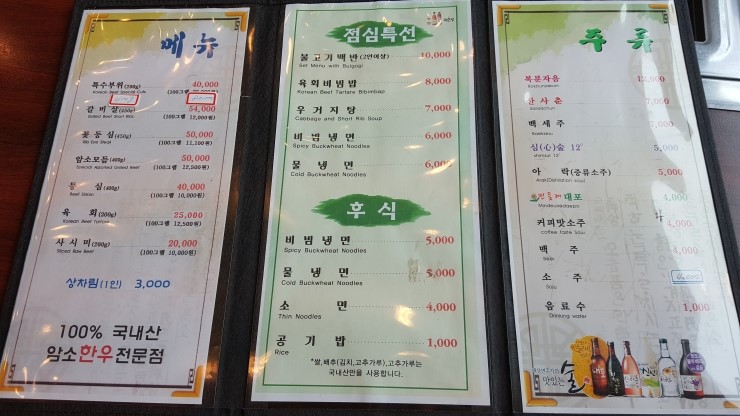 메뉴
특수부위(200g) 40,000
Korean Beef Special Cuts (100그램
갈비살(450g) 54,000
Grilled Beef Short Rib (100그램 12,000원)
꽃등심(450g) 50,000
Rib Eye Steak (100그램 11,100원)
암소모듬(400g) 50,000
Special Assorted Grilled Beef (100그램 12,500원)
등심(400g) 40,000
Beef Sirloin (100그램 10,000원)
육회(200g) 25,000
Korean Beef Tartare (100그램 12,500원)
사시미(200g) 20,000
Sliced Raw Beef (100그램 10,000원)
상차림(1인) 3,000
100% 국내산
암소한우전문점
점심특선
불고기백반(2인이상) 10,000
Set Menu with Bulgogi
육회비빔밥 8,000
Korean Beef Tartare Bibimbap
우거지탕 7,000
Cabbage and Short Rib Soup
비빔냉면 6,000
Spicy Buckwheat Noodles
물냉면 6,000
Cold Buckwheat Noodles
후식
비빔냉면 5,000
Spicy Buckwheat Noodles
물냉면 5,000
Cold Buckwheat Noodles
소면 4,000
Thin Noodles
공기밥 1,000
Rice
*쌀,배추(김치,고추가루),고추가루는
국내산만을 사용합니다.
주류
복분자음 12,000
산사춘 7,000
백세주 7,000
심(心)술 12˚ 5,000
아락(증류소주) 5,000
민들레대포 4,000
커피맛소주 4,000
coffee taste Soju
백주 4,000
소주
Soju
음료수 1,000
Drinking water
맛있는 술